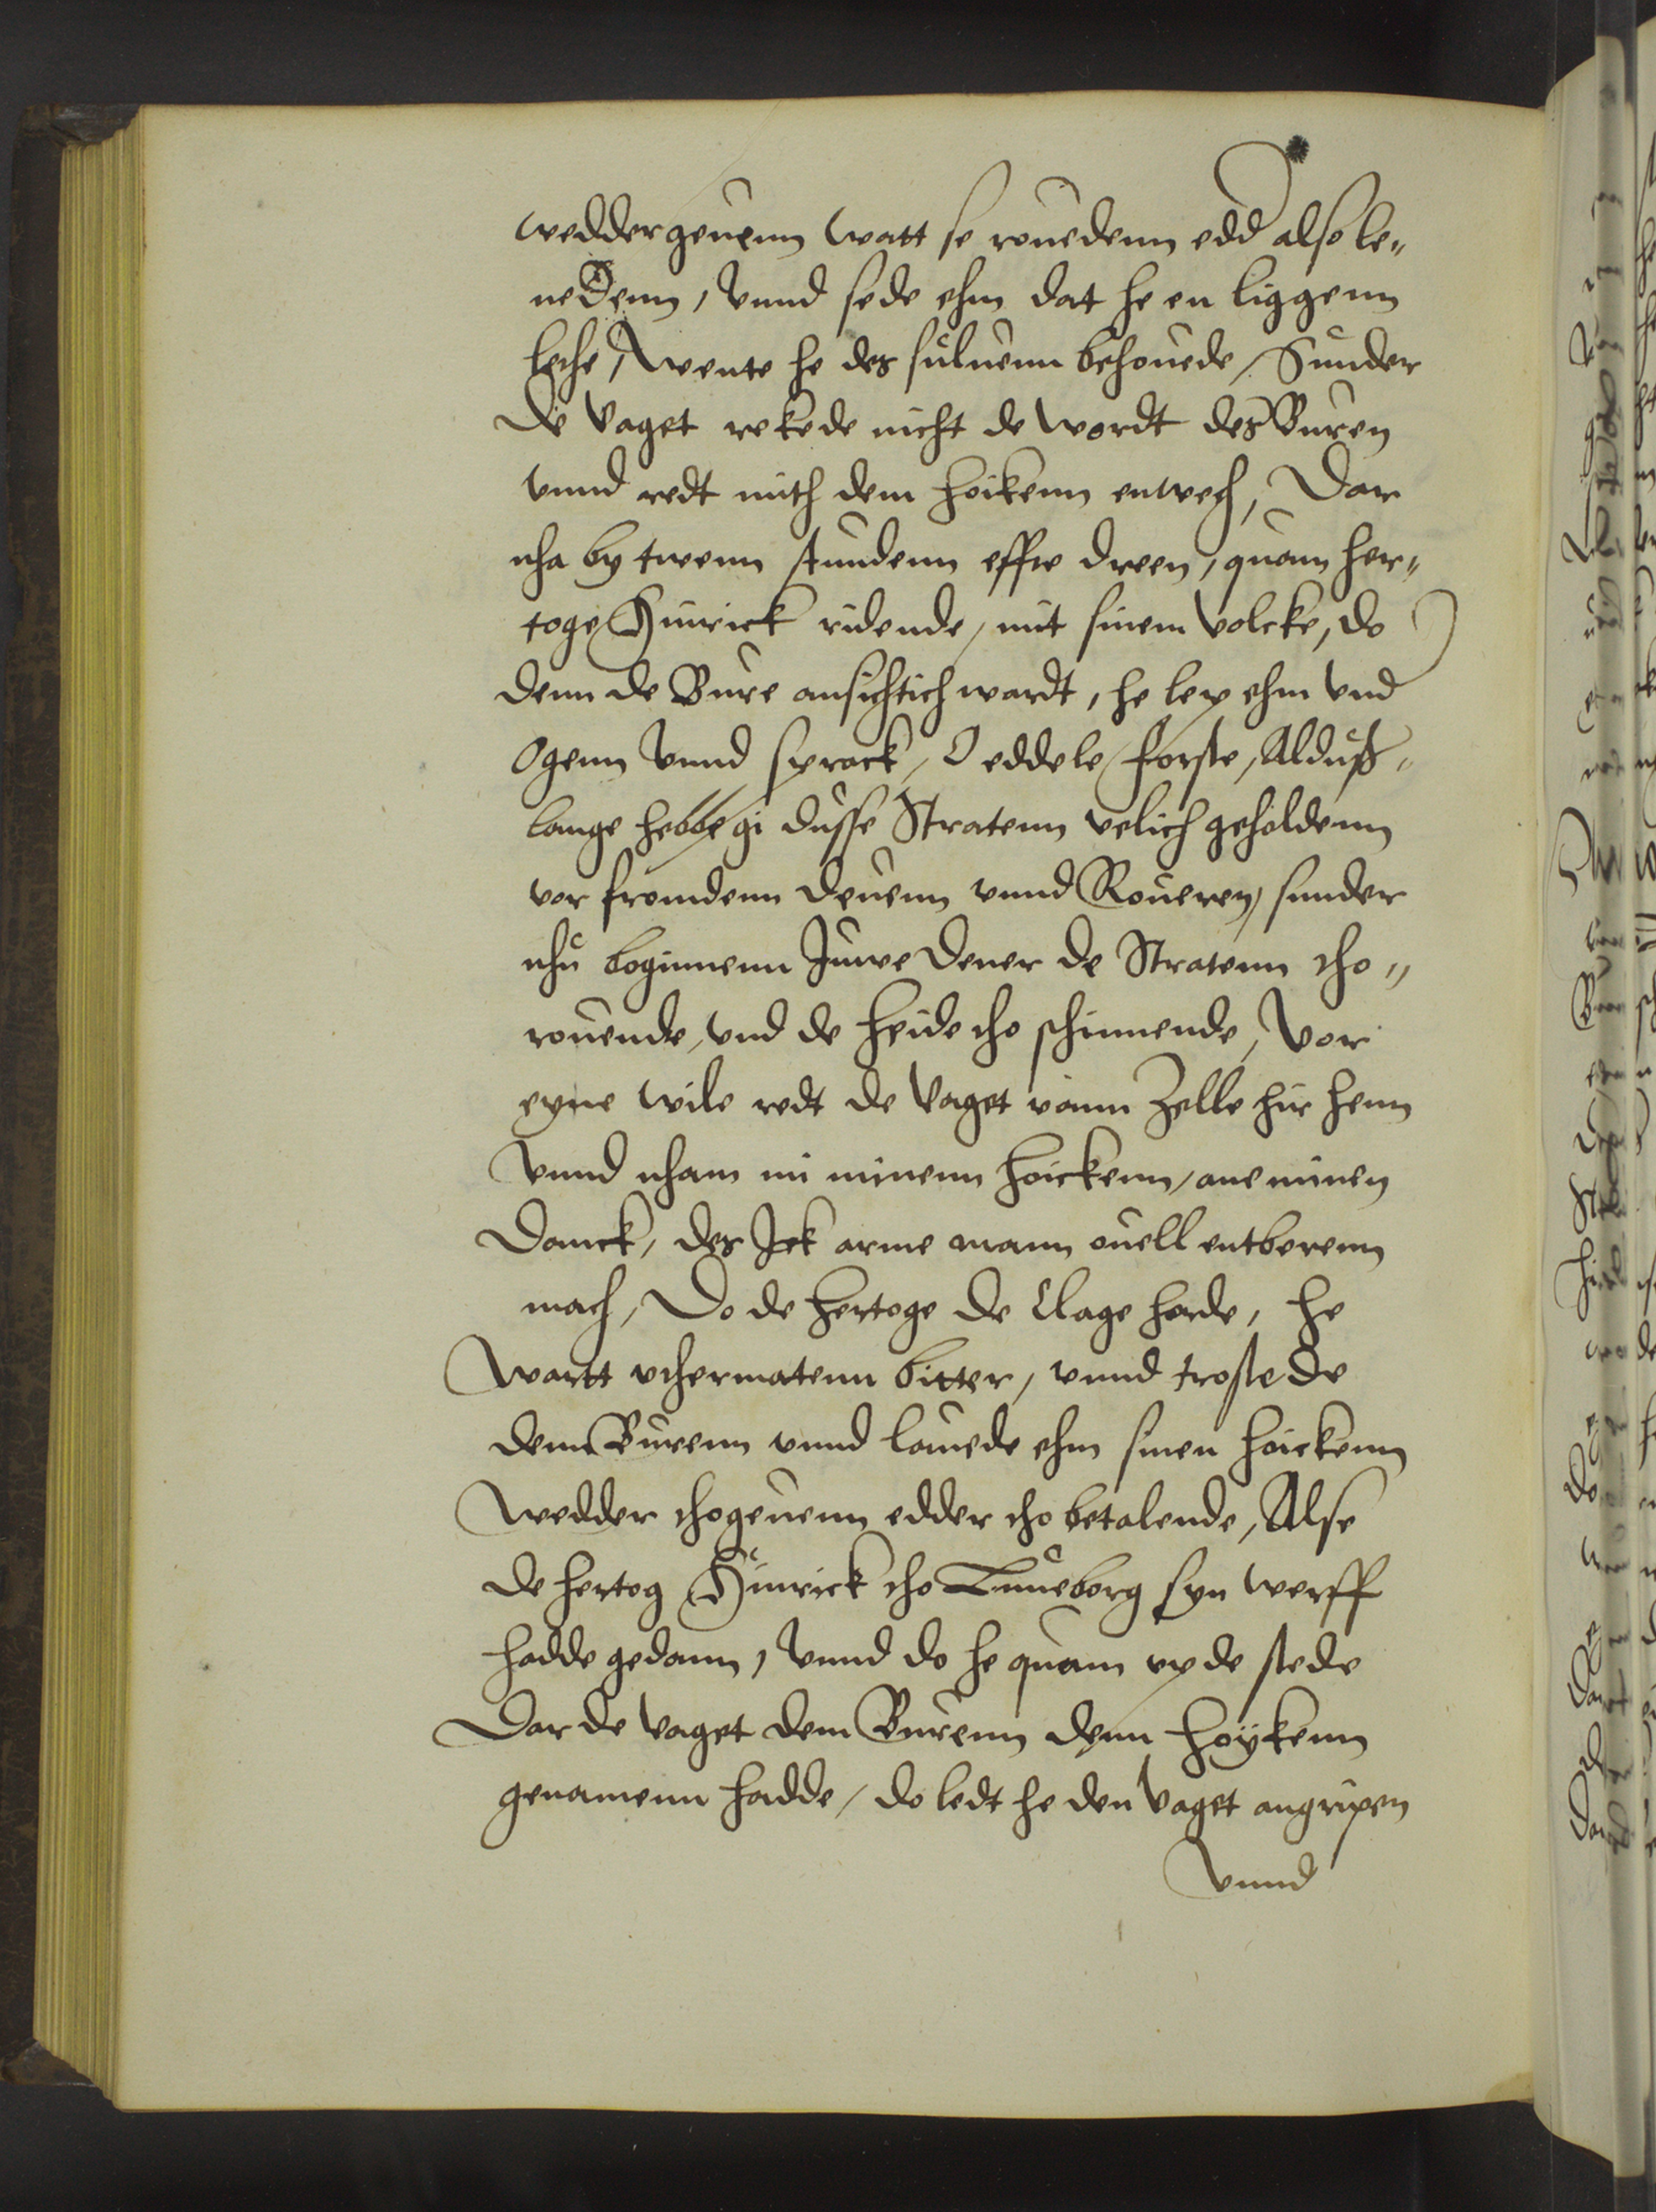 weddergeuenn watt se rouedenn edd also le„
nedenn, vnnd sede ehm dat he en liggenn
lethe, wente he des suluenn behouede, Sunder
De Vaget rekede nicht de wordt des Buren
vnnd redt mith dem hoikenn enwech, Dar
nha by twenn stundenn effte dreen, quam her„
toge Hinrick ridende, mit sinem volcke, do
denn de Bure ansichtich wardt, he lep ehm vnd
Ogenn vnnd sprack, O eddele forste, Alduß„
lange hebbe gi dusse Stratenn velich geholdenn
vor fromdenn deuenn vnnd Roueren, sunder
nhu beginnenn Juwe dener de Stratenn tho„
rouende, vnd de heide tho schinnende, Vor
eyne wile redt de Vaget vann Zelle hir henn
Vnnd nham mi minenn hoickenn, ane minen
Danck, des Jck arme mann ouell entberenn
mach, Do de hertoge de Clage horde, he
Wartt vthermatenn bitter, vnnd trostede
dem Burenn vnnd lauede ehm sinen hoickenn
Wedder thogeuenn edder tho betalende, Alse
de hertog Hinrick tho Luneborg syn werff
hadde gedann, Vnnd do he quam vp de stede
Dar de Vaget dem Burenn denn hoÿkenn
genamenn hadde, do ledt he den Vaget angripen
Vnnd